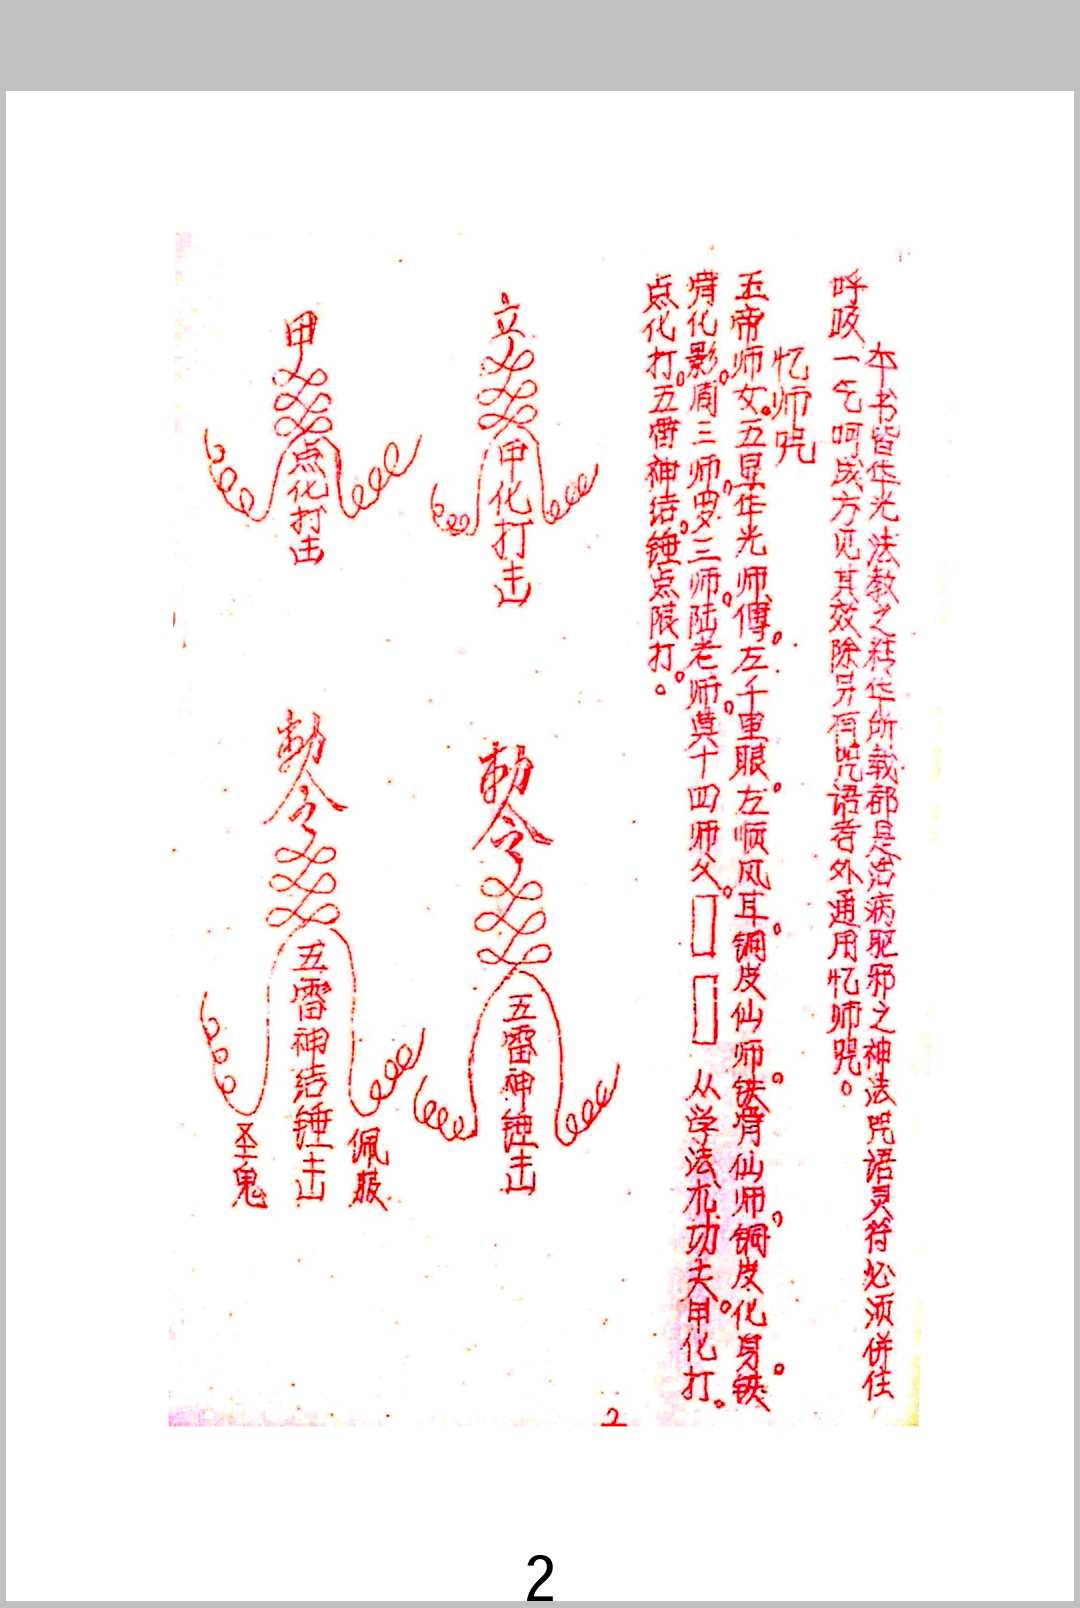 本书皆华光法教之精华所载都是治病驱邪之神法咒语灵符必须併住
呼吸一气呵成方见其效除另有咒语者外通用忆师咒。
忆师咒
玉帝师女。五显华光师傅。左千里眼。左顺风耳。铜皮仙师。铁骨仙师。铜皮化身。铁
骨化影。周三师。罗三师。陆老师。莫十四师父。 从学法 功夫。甲化打。
点化打。五雷神结。锤点限打。。
立
甲化打击
甲
点化打击
勅令
五雷神锤击
勅令
佩
五雷神结锤击
圣鬼
2
2